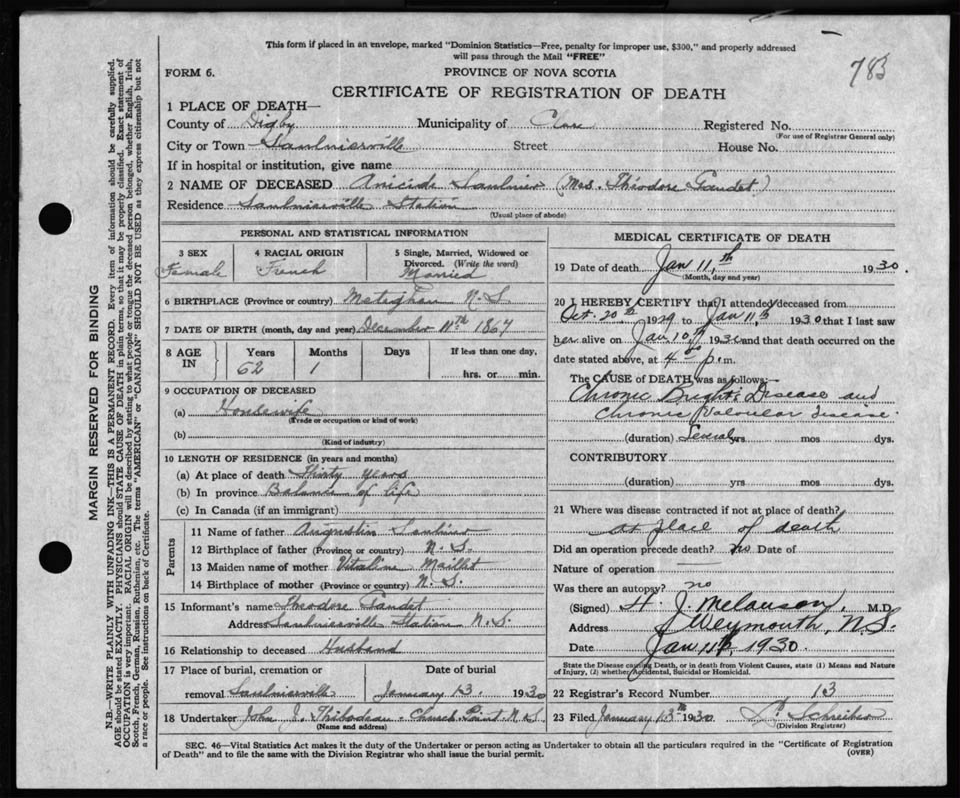 This form if placed in an envelope, marked "Dominion Statistics—Free, penalty for improper use, $300," and properly addressed
will pass through the Mail "FREE"
783
FORM 6.
PROVINCE OF NOVA SCOTIA
CERTIFICATE OF REGISTRATION OF DEATH
1 PLACE OF DEATH—
County of Digby Municipality of Clare Registered No.
(For use of Registrar General only)
City or Town Saulnierville Street House No.
If in hospital or institution, give name
2 NAME OF DECEASED Anicide Saulnier (Mrs. Théodore Gaudet)
Residence Saulnierville Station
(Usual place of abode)
PERSONAL AND STATISTICAL INFORMATION
3 SEX 4 RACIAL ORIGIN 5 Single, Married, Widowed or
Divorced. (Write the word)
Female French Married
6 BIRTHPLACE (Province or country) Meteghan N.S.
7 DATE OF BIRTH (month, day and year) December 11th 1867
8 AGE IN Years Months Days If less than one day,
62 1 hrs. or min.
9 OCCUPATION OF DECEASED
(a) Housewife
(Trade or occupation or kind of work)
(b)
(Kind of industry)
10 LENGTH OF RESIDENCE (in years and months)
(a) At place of death Thirty years
(b) In province Balance of life
(c) In Canada (if an immigrant)
Parents
11 Name of father Augustin Saulnier
12 Birthplace of father (Province or country) N. S.
13 Maiden name of mother Vitaline Maillet
14 Birthplace of mother (Province or country) N. S.
15 Informant's name Theodore Gaudet
Address Saulnierville Station N.S.
16 Relationship to deceased Husband
17 Place of burial, cremation or Date of burial
removal Saulnierville January 13. 1930
18 Undertaker John J. Thibodeau - Church Point N.S.
(Name and address)
MEDICAL CERTIFICATE OF DEATH
19 Date of death Jan 11,th 1930.
(Month, day and year)
20 I HEREBY CERTIFY that I attended deceased from
Oct. 20th 1929 to Jan 11th 1930 that I last saw
her alive on Jan 10th 1930 and that death occurred on the
date stated above, at 4 00 p.m.
The CAUSE of DEATH was as follows:—
Chronic Bright's Disease and
Chronic Valvular disease.
(duration) Several yrs mos dys.
CONTRIBUTORY
(duration) yrs mos dys.
21 Where was disease contracted if not at place of death?
at place of death
Did an operation precede death? no Date of
Nature of operation —
Was there an autopsy? no
(Signed) H. J. Melanson, M.D.
Address Weymouth, N.S.
Date Jan 11th, 1930.
State the Disease causing Death, or in death from Violent Causes, state (1) Means and Nature
of Injury, (2) whether Accidental, Suicidal or Homicidal.
22 Registrar's Record Number 13
23 Filed January 13th 1930 Schreiber
(Division Registrar)
SEC. 46—Vital Statistics Act makes it the duty of the Undertaker or person acting as Undertaker to obtain all the particulars required in the "Certificate of Registration
of Death" and to file the same with the Division Registrar who shall issue the burial permit. (OVER)
MARGIN RESERVED FOR BINDING
N.B.—WRITE PLAINLY WITH UNFADING INK—THIS IS A PERMANENT RECORD. Every item of information should be carefully supplied.
AGE should be stated EXACTLY. PHYSICIANS should STATE CAUSE OF DEATH in plain terms, so that it may be properly classified. Exact statement of
OCCUPATION is very important. RACIAL ORIGIN will be described by stating to what people or tongue the deceased person belonged, whether English, Irish,
Scotch, French, German, Russian, Ruthenian, etc. The terms "AMERICAN" or "CANADIAN" SHOULD NOT BE USED as they express citizenship but not
a race or people. See instructions on back of Certificate.